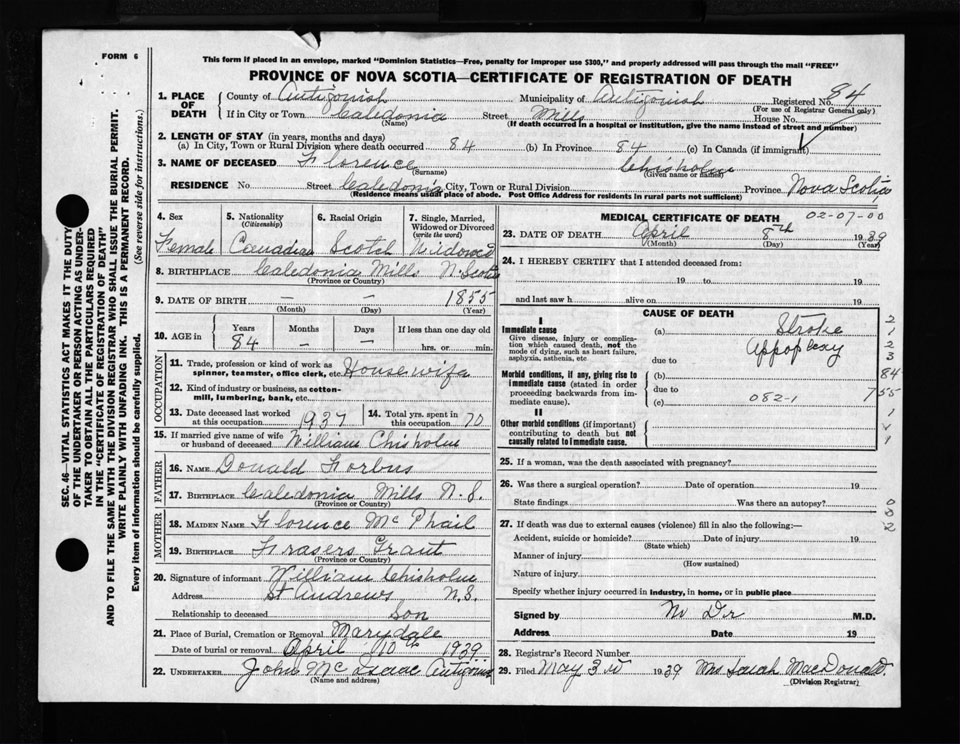 FORM 6
This form if placed in an envelope, marked "Dominion Statistics—Free, penalty for improper use $300," and properly addressed will pass through the mail "FREE"
PROVINCE OF NOVA SCOTIA—CERTIFICATE OF REGISTRATION OF DEATH
SEC. 46—VITAL STATISTICS ACT MAKES IT THE DUTY
OF THE UNDERTAKER OR PERSON ACTING AS UNDER-
TAKER TO OBTAIN ALL THE PARTICULARS REQUIRED
IN THE "CERTIFICATE OF REGISTRATION OF DEATH"
AND TO FILE THE SAME WITH THE DIVISION REGISTRAR WHO SHALL ISSUE THE BURIAL PERMIT.
WRITE PLAINLY WITH UNFADING INK. THIS IS A PERMANENT RECORD.
Every item of information should be carefully supplied. (See reverse side for instructions.)
1. PLACE OF DEATH
County of Antigonish Municipality of Antigonish Registered No. 84
(For use of Registrar General only)
If in City or Town Caledonia Street Mills House No.
(Name) (If death occurred in a hospital or institution, give the name instead of street and number)
2. LENGTH OF STAY (in years, months and days)
(a) In City, Town or Rural Division where death occurred 84 (b) In Province 84 (c) In Canada (if immigrant)
3. NAME OF DECEASED Florence Chisholm
(Surname) (Given name or names)
RESIDENCE No. Street Caledonia City, Town or Rural Division Province Nova Scotia
(Residence means usual place of abode. Post Office Address for residents in rural parts not sufficient)
4. Sex 5. Nationality (Citizenship) 6. Racial Origin 7. Single, Married, Widowed or Divorced (write the word)
Female Canadian Scotch Widowed
8. BIRTHPLACE Caledonia Mills N. Scotia
(Province or Country)
9. DATE OF BIRTH — — 1855
(Month) (Day) (Year)
10. AGE in Years Months Days If less than one day old
84 — — hrs. or min.
OCCUPATION
11. Trade, profession or kind of work as spinner, teamster, office clerk, etc. Housewife
12. Kind of industry or business, as cotton-mill, lumbering, bank, etc.
13. Date deceased last worked at this occupation 1937 14. Total yrs. spent in this occupation 70
15. If married give name of wife or husband of deceased William Chisholm
FATHER
16. NAME Donald Forbus
17. BIRTHPLACE Caledonia Mills N.S.
(Province or Country)
MOTHER
18. MAIDEN NAME Florence McPhail
19. BIRTHPLACE Frasers Grant
(Province or Country)
20. Signature of informant William Chisholm
Address St Andrews N.S.
Relationship to deceased Son
21. Place of Burial, Cremation or Removal Marydale
Date of burial or removal April 10th 1939
22. UNDERTAKER John McIsaac Antigonish
(Name and address)
MEDICAL CERTIFICATE OF DEATH 02-07-00
23. DATE OF DEATH April 8th 1939
(Month) (Day) (Year)
24. I HEREBY CERTIFY that I attended deceased from:
19 to 19
and last saw h alive on 19
CAUSE OF DEATH
I
Immediate cause (a) Stroke
Give disease, injury or complication which caused death, not the mode of dying, such as heart failure, asphyxia, asthenia, etc. Appoplexy
due to
Morbid conditions, if any, giving rise to immediate cause (stated in order proceeding backwards from immediate cause). (b)
due to
(c) 082-1
II
Other morbid conditions (if important) contributing to death but not causally related to immediate cause.
2
1
2
3
84
755
1
1
25. If a woman, was the death associated with pregnancy?
26. Was there a surgical operation? Date of operation 19
State findings Was there an autopsy?
27. If death was due to external causes (violence) fill in also the following:—
Accident, suicide or homicide? Date of injury 19
(State which)
Manner of injury
(How sustained)
Nature of injury
Specify whether injury occurred in industry, in home, or in public place
Signed by No Dr M.D.
Address Date 19
28. Registrar's Record Number
29. Filed May 3rd 1939 Mrs Sarah MacDonald.
(Division Registrar)